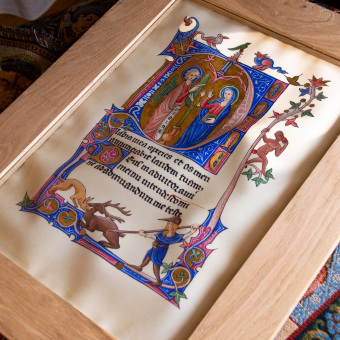 labia mea aperies et os meu
laudem tuam
Deus in adiutoriu
meum intende domi
ne ad adiuvandum me festi